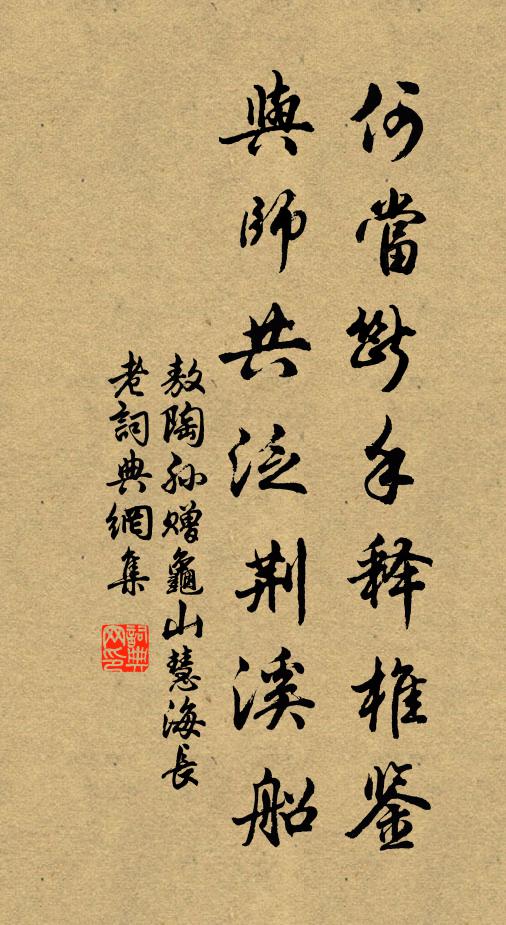 何當斷手释椎鉴
與師共泛荆溪船
敖陶孙赠龜山慧海長
老詞典網集
詞典网印